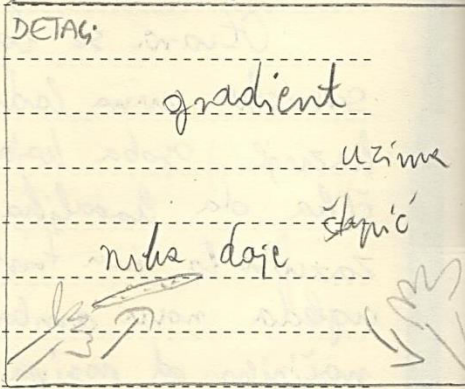 DETALJ
gradient
uzima
štapić
ruka daje